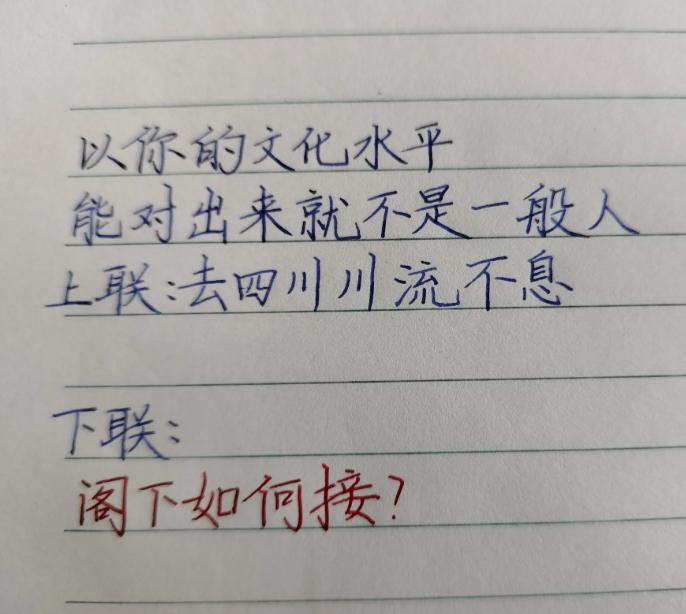 以你的文化水平
能对出来就不是一般人
上联:去四川川流不息
下联:
阁下如何接?